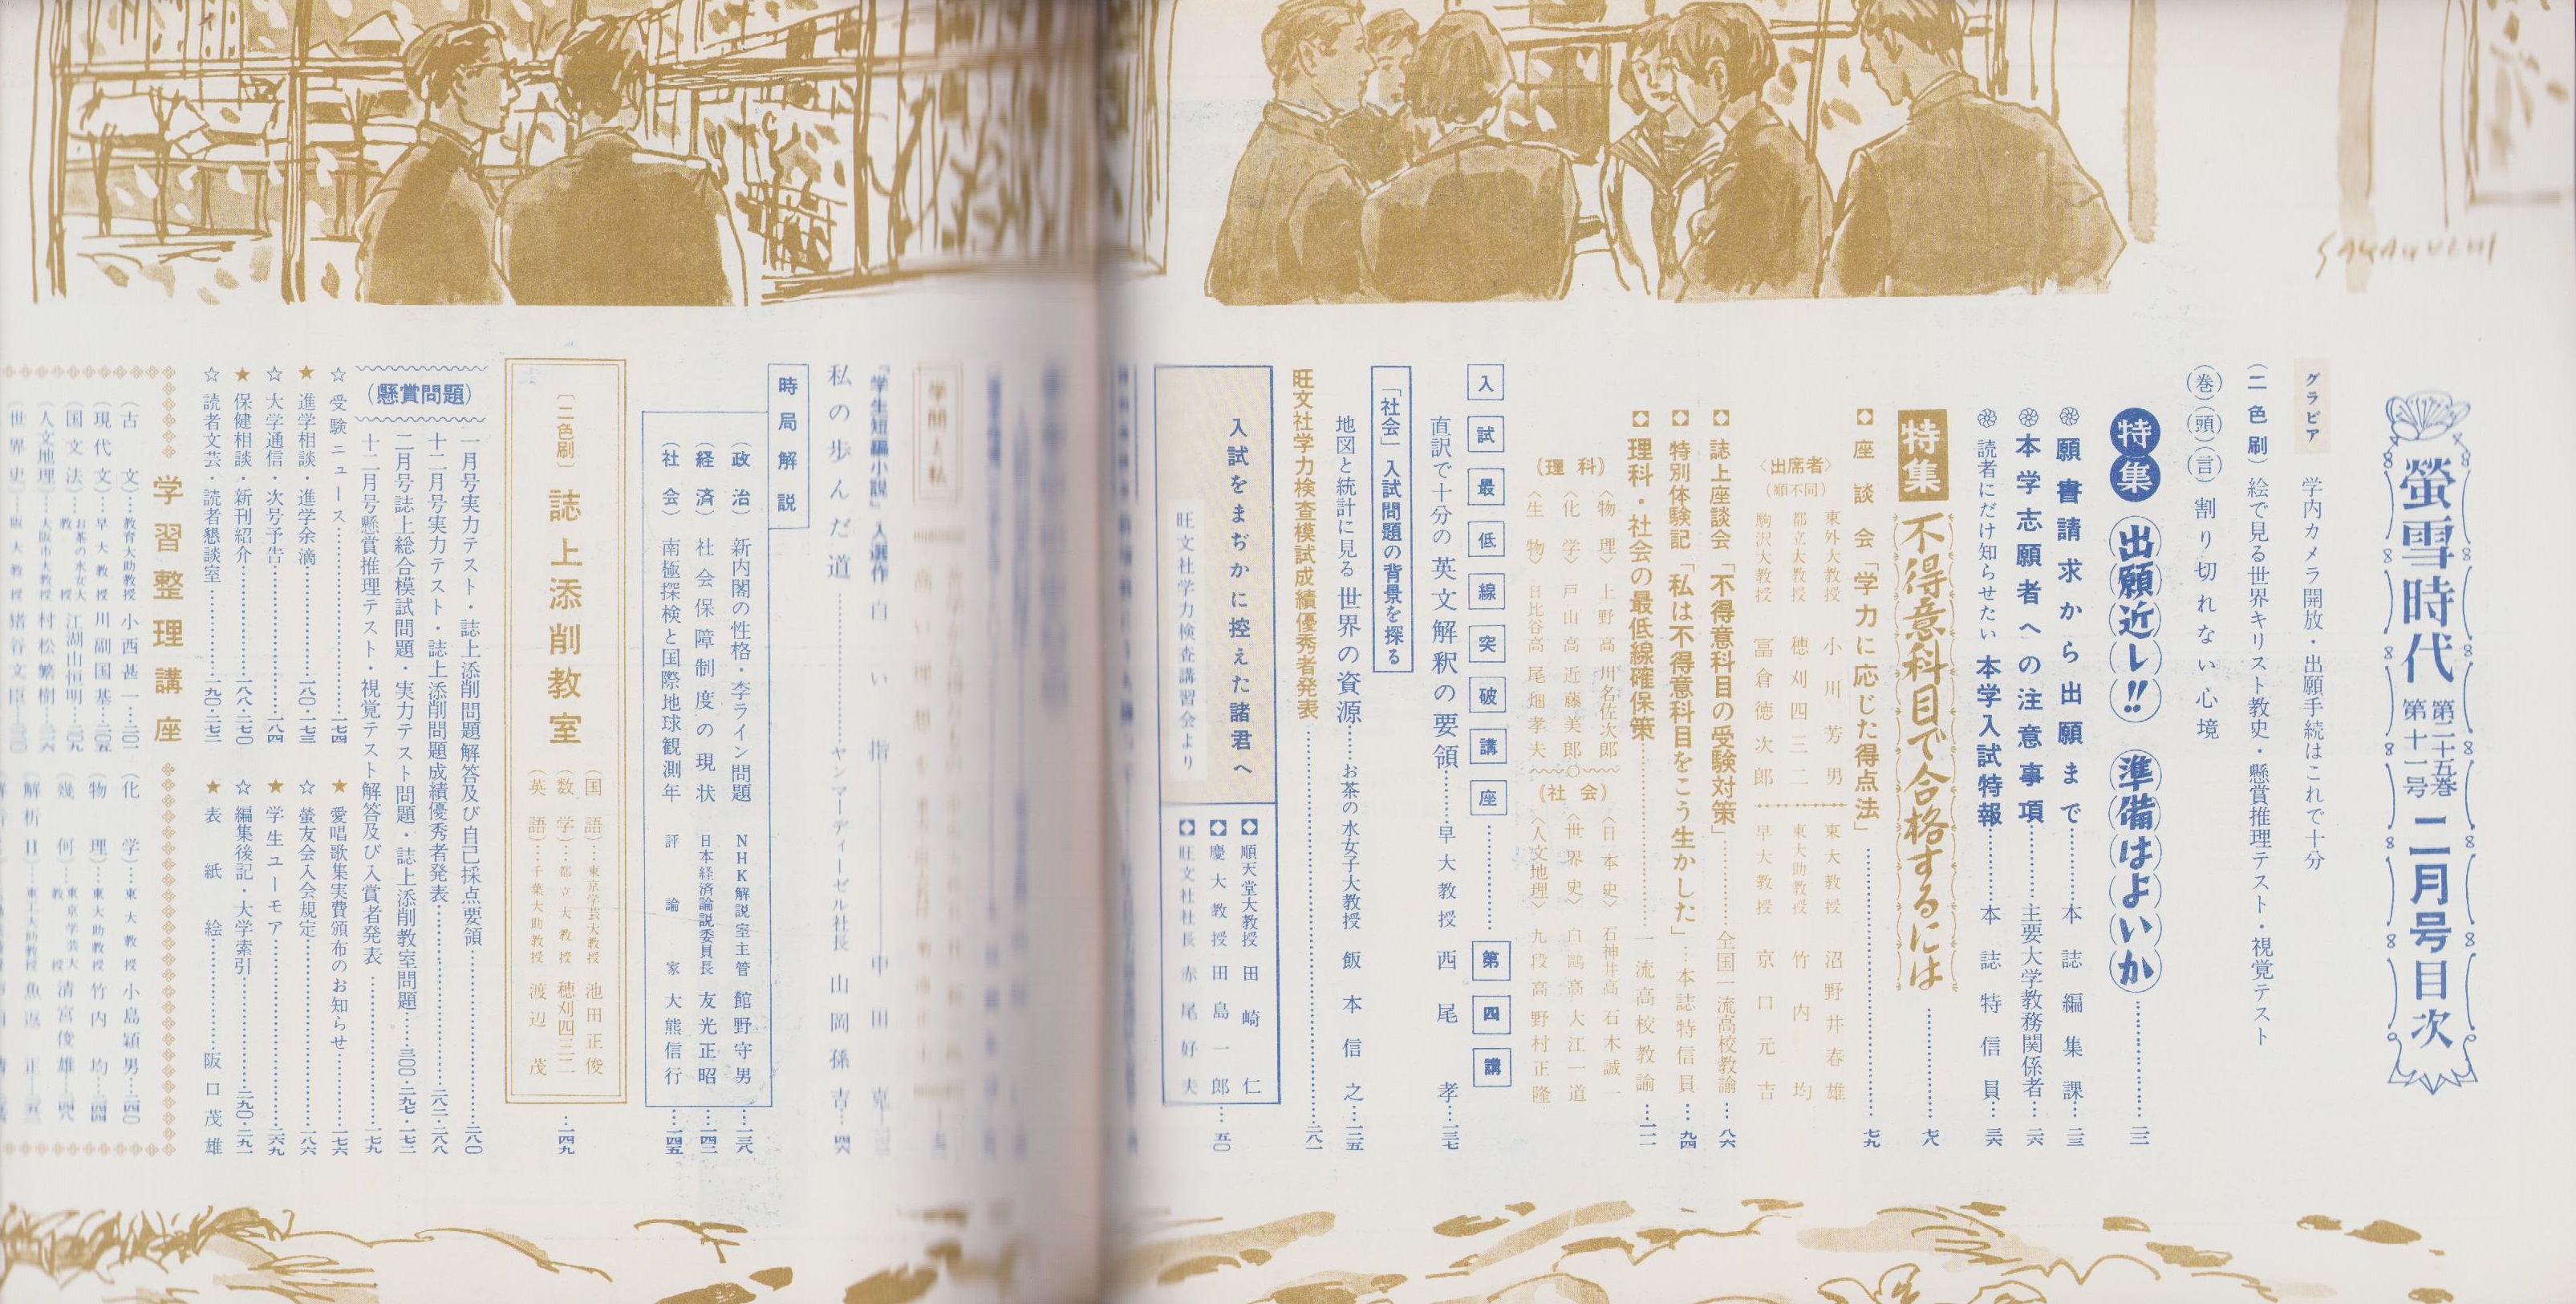 SAKAGUCHI
螢雪時代 第二十五巻 第十一号 二月号目次
グラビア 学内カメラ開放・出願手続はこれで十分
（二色刷）絵で見る世界キリスト教史・懸賞推理テスト・視覚テスト
（巻）（頭）（言）割り切れない心境
特集 出願近し!! 準備はよいか……二二
願書請求から出願まで……本誌編集課…二三
本学志願者への注意事項……主要大学教務関係者…二六
読者にだけ知らせたい 本学入試特報……本誌特信員…三六
特集 不得意科目で合格するには……七八
◆座談会「学力に応じた得点法」……七九
〈出席者〉（順不同）
東外大教授 小川芳男……東大教授 沼野井春雄
都立大教授 穂刈四三二 東大助教授 竹内均
駒沢大教授 冨倉徳次郎 早大教授 京口元吉
◆誌上座談会「不得意科目の受験対策」……全国一流高校教諭…八六
◆特別体験記「私は不得意科目をこう生かした」…本誌特信員…九四
◆理科・社会の最低線確保策……一流高校教諭…一一一
《理科》
〈物理〉上野高 川名佐次郎
〈化学〉戸山高 近藤美郎
〈生物〉日比谷高 尾畑孝夫
《社会》
〈日本史〉石神井高 石木誠一
〈世界史〉白鷗高 大江一道
〈人文地理〉九段高 野村正隆
入試最低線突破講座……第四講
直訳で十分の 英文解釈の要領……早大教授 西尾孝…一三七
「社会」入試問題の背景を探る
地図と統計に見る 世界の資源……お茶の水女子大教授 飯本信之…一三五
旺文社学力検査模試成績優秀者発表……二八一
入試をまぢかに控えた諸君へ
旺文社学力検査講習会より
◆順天堂大教授 田崎仁
◆慶大教授 田島一郎…五〇
◆旺文社社長 赤尾好夫
学問と私
『学生短編小説』入選作 白い指……中田克
私の歩んだ道……ヤンマーディーゼル社長 山岡孫吉…四六
時局解説
（政治）新内閣の性格・李ライン問題 NHK解説室主管 館野守男…一三八
（経済）社会保障制度の現状 日本経済論説委員長 友光正昭…一四二
（社会）南極探検と国際地球観測年 評論家 大熊信行…一四五
〔二色刷〕誌上添削教室
（国語）…東京学芸大教授 池田正俊
（数学）…都立大教授 穂刈四三二…一四九
（英語）…千葉大助教授 渡辺茂
（懸賞問題）
一月号実力テスト・誌上添削問題解答及び自己採点要領……二八〇
十二月号実力テスト・誌上添削問題成績優秀者発表……二八二・二八八
二月号誌上総合模試問題・実力テスト問題・誌上添削教室問題……三〇〇・二九七・一七二
十二月号懸賞推理テスト・視覚テスト解答及び入賞者発表……一七九
☆受験ニュース……一七四
★愛唱歌集実費頒布のお知らせ……一七六
★進学相談・進学余滴……一八〇・一七三
☆螢友会入会規定……一八六
☆大学通信・次号予告……一八四
★学生ユーモア……二六九
★保健相談・新刊紹介……一八八・二七〇
☆編集後記・大学索引……二九〇・二九一
☆読者文芸・読者懇談室……一九〇・二七二
★表紙絵……阪口茂雄
学習整理講座
（古文）…教育大助教授 小西甚一…二〇一
（現代文）…早大教授 川副国基…二〇五
（国文法）…お茶の水女大教授 江湖山恒明…二〇九
（人文地理）…大阪市大教授 村松繁樹…二一六
（世界史）…阪大教授 猪谷文臣
（化学）…東大教授 小島穎男…二四〇
（物理）…東大助教授 竹内均…二四四
（幾何）…東京学芸大教授 清宮俊雄…二四八
（解析Ⅱ）…東工大助教授 魚返正